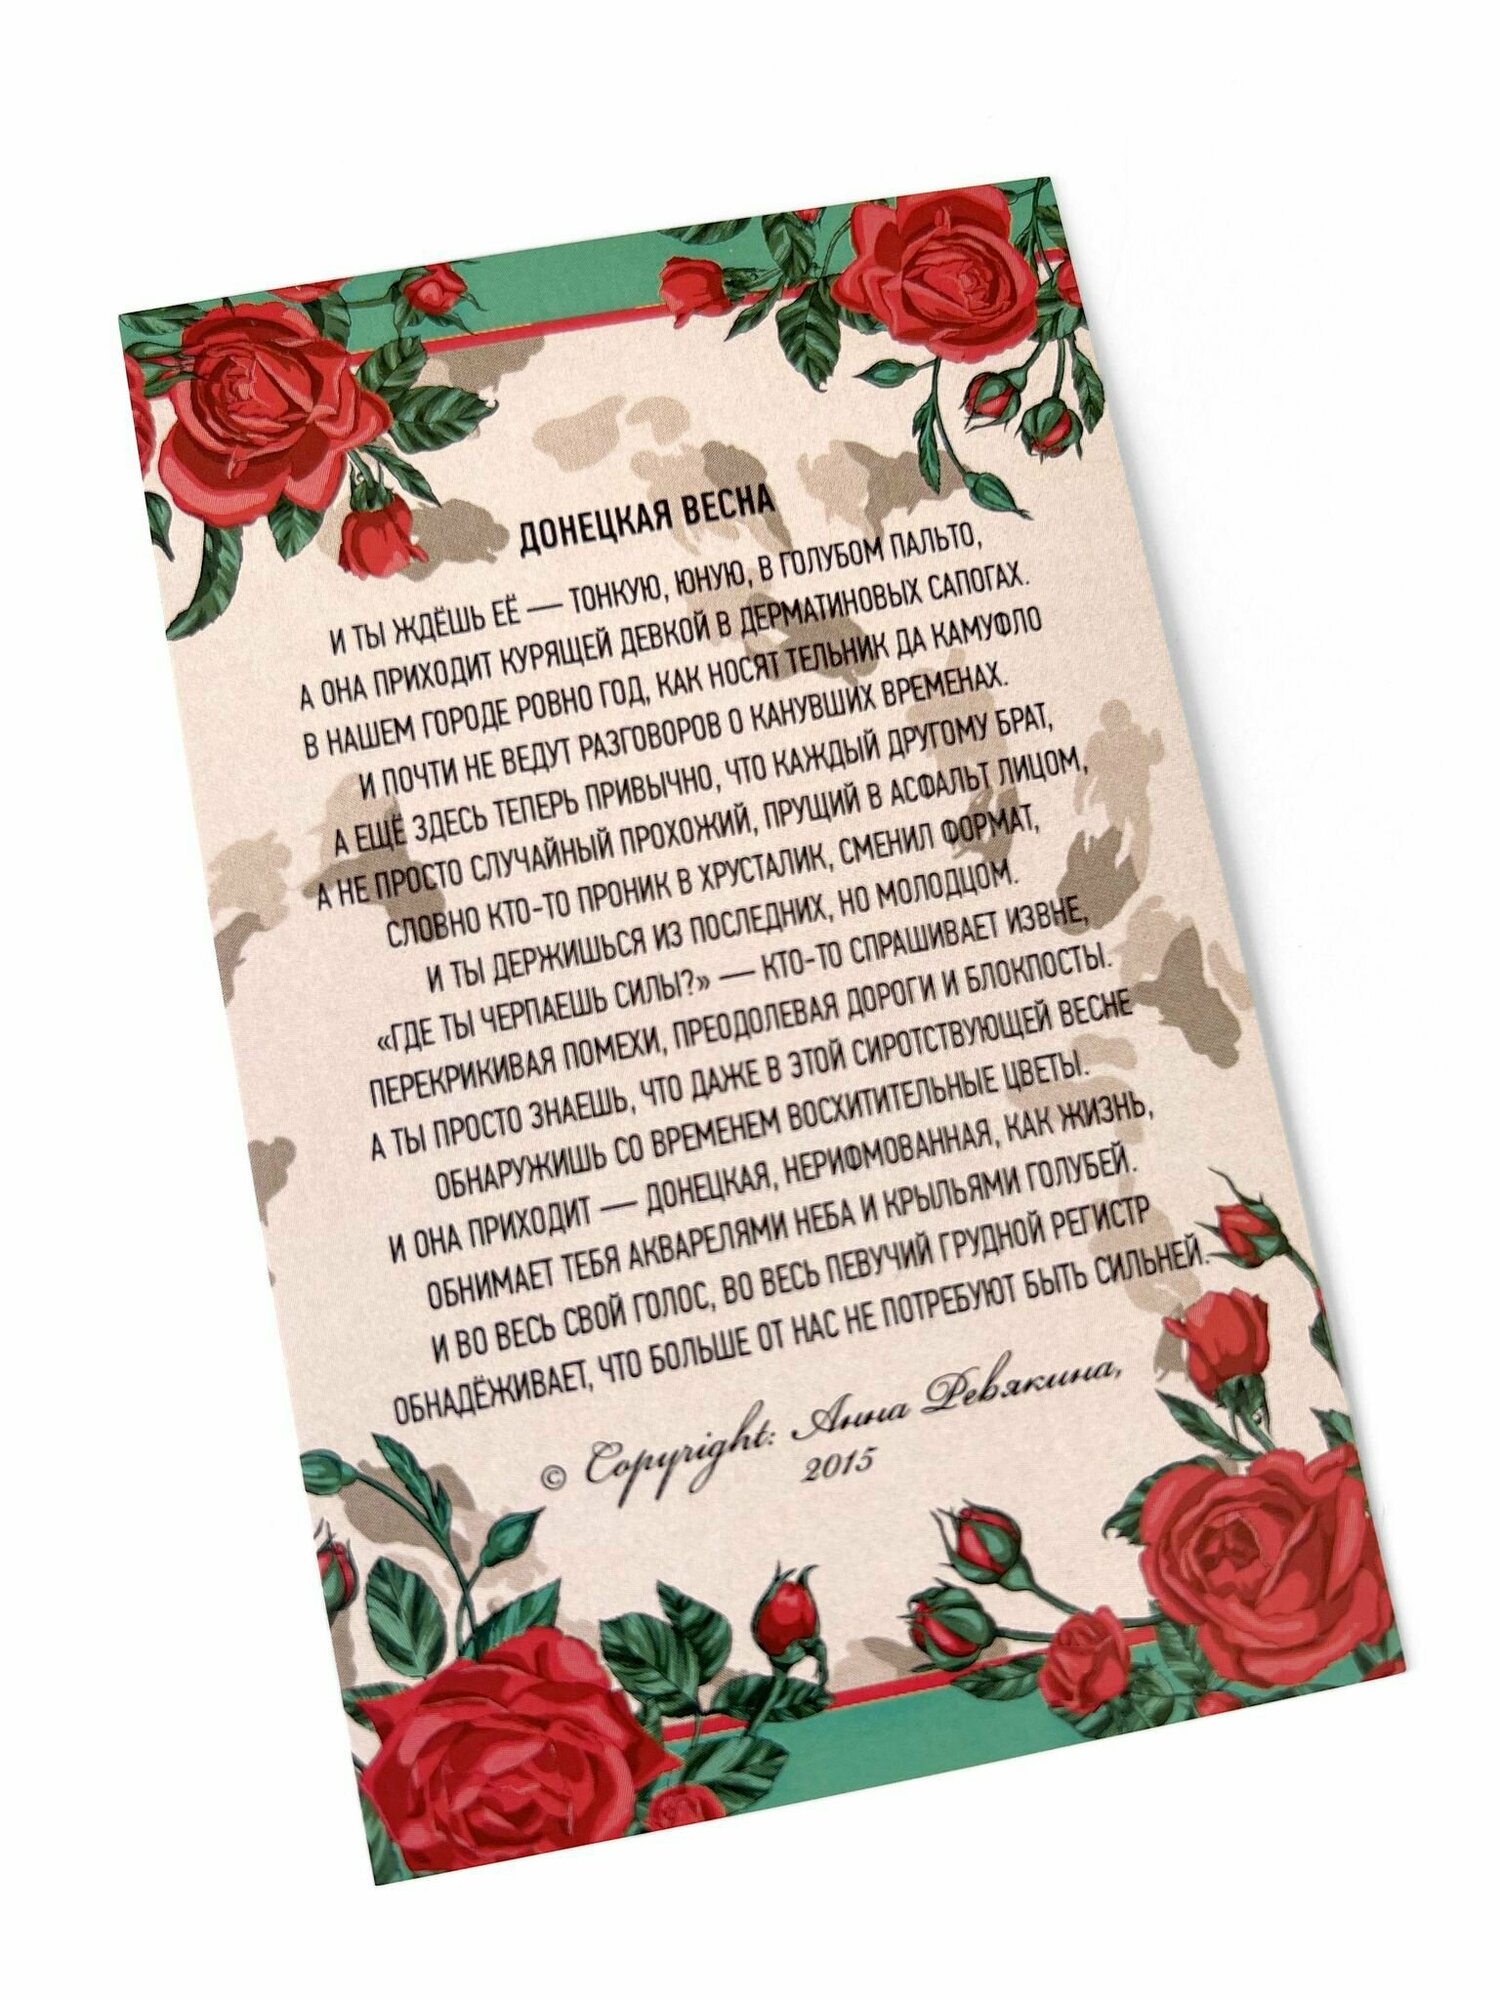 ДОНЕЦКАЯ ВЕСНА
И ТЫ ЖДЁШЬ ЕЁ — ТОНКУЮ, ЮНУЮ, В ГОЛУБОМ ПАЛЬТО,
А ОНА ПРИХОДИТ КУРЯЩЕЙ ДЕВКОЙ В ДЕРМАТИНОВЫХ САПОГАХ.
В НАШЕМ ГОРОДЕ РОВНО ГОД, КАК НОСЯТ ТЕЛЬНИК ДА КАМУФЛО
И ПОЧТИ НЕ ВЕДУТ РАЗГОВОРОВ О КАНУВШИХ ВРЕМЕНАХ.
А ЕЩЁ ЗДЕСЬ ТЕПЕРЬ ПРИВЫЧНО, ЧТО КАЖДЫЙ ДРУГОМУ БРАТ,
А НЕ ПРОСТО СЛУЧАЙНЫЙ ПРОХОЖИЙ, ПРУЩИЙ В АСФАЛЬТ ЛИЦОМ,
СЛОВНО КТО-ТО ПРОНИК В ХРУСТАЛИК, СМЕНИЛ ФОРМАТ,
И ТЫ ДЕРЖИШЬСЯ ИЗ ПОСЛЕДНИХ, НО МОЛОДЦОМ.
«ГДЕ ТЫ ЧЕРПАЕШЬ СИЛЫ?» — КТО-ТО СПРАШИВАЕТ ИЗВНЕ,
ПЕРЕКРИКИВАЯ ПОМЕХИ, ПРЕОДОЛЕВАЯ ДОРОГИ И БЛОКПОСТЫ.
А ТЫ ПРОСТО ЗНАЕШЬ, ЧТО ДАЖЕ В ЭТОЙ СИРОТСТВУЮЩЕЙ ВЕСНЕ
ОБНАРУЖИШЬ СО ВРЕМЕНЕМ ВОСХИТИТЕЛЬНЫЕ ЦВЕТЫ.
И ОНА ПРИХОДИТ — ДОНЕЦКАЯ, НЕРИФМОВАННАЯ, КАК ЖИЗНЬ,
ОБНИМАЕТ ТЕБЯ АКВАРЕЛЯМИ НЕБА И КРЫЛЬЯМИ ГОЛУБЕЙ.
И ВО ВЕСЬ СВОЙ ГОЛОС, ВО ВЕСЬ ПЕВУЧИЙ ГРУДНОЙ РЕГИСТР
ОБНАДЁЖИВАЕТ, ЧТО БОЛЬШЕ ОТ НАС НЕ ПОТРЕБУЮТ БЫТЬ СИЛЬНЕЙ.
© Copyright: Анна Ревякина,
2015